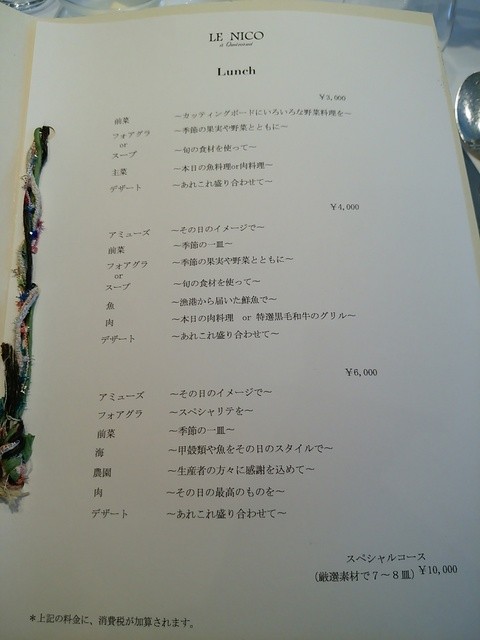 LE NICO
a Ouénessui
Lunch
¥3,000
前菜 ～カッティングボードにいろいろな野菜料理を～
フォアグラ ～季節の果実や野菜とともに～
or
スープ ～旬の食材を使って～
主菜 ～本日の魚料理or肉料理～
デザート ～あれこれ盛り合わせて～
¥4,000
アミューズ ～その日のイメージで～
前菜 ～季節の一皿～
フォアグラ ～季節の果実や野菜とともに～
or
スープ ～旬の食材を使って～
魚 ～漁港から届いた鮮魚で～
肉 ～本日の肉料理 or 特選黒毛和牛のグリル～
デザート ～あれこれ盛り合わせて～
¥6,000
アミューズ ～その日のイメージで～
フォアグラ ～スペシャリテを～
前菜 ～季節の一皿～
海 ～甲殻類や魚をその日のスタイルで～
農園 ～生産者の方々に感謝を込めて～
肉 ～その日の最高のものを～
デザート ～あれこれ盛り合わせて～
スペシャルコース
(厳選素材で7～8皿) ¥10,000
＊上記の料金に、消費税が加算されます。